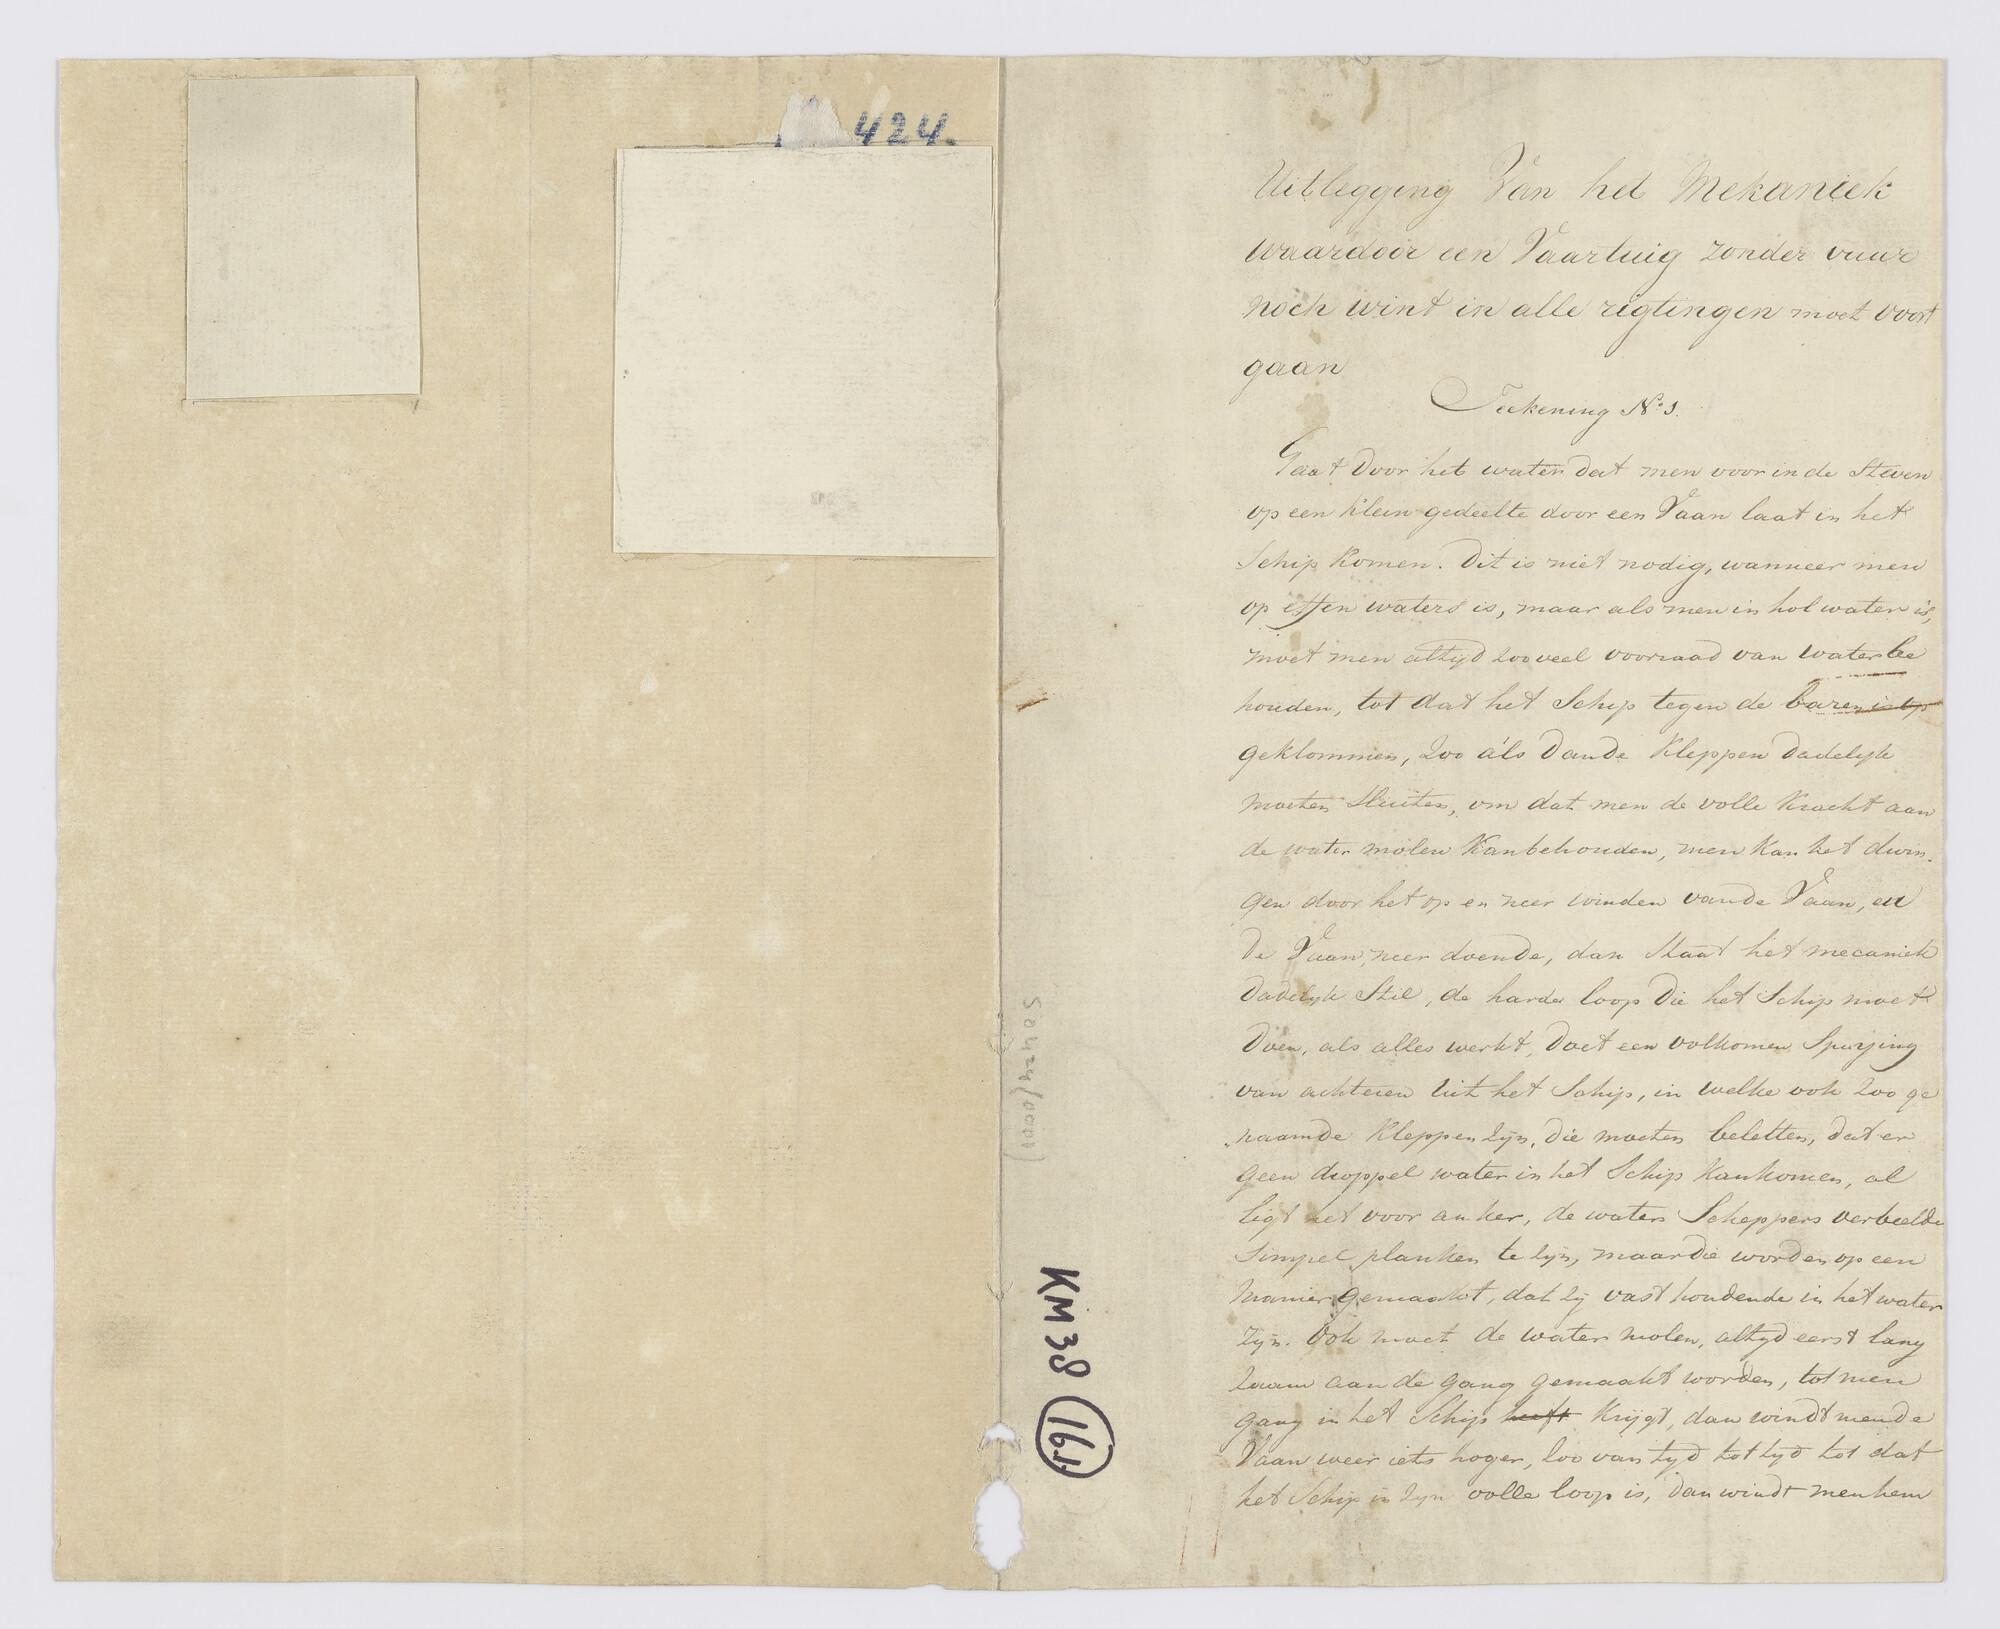 424.
Uitlegging Van het Mekaniek
waardoor een Vaartuig zonder vuur
noch wint in alle rigtingen moet voort
gaan
Teekening No. 1.
Gaat door het water dat men voor in de Steven
op een klein gedeelte door een Vaan laat in het
Schip komen. Dit is niet nodig, wanneer men
op effen waters is, maar als men in hol water is,
moet men altyd zoo veel voorraad van water be
houden, tot dat het Schip tegen de baren is op
geklommen, zoo als dan de Kleppen dadelyk
moeten Sluiten, om dat men de volle Kracht aan
de water molen Kan behouden, men Kan het dwin-
gen door het op en neer winden van de Vaan, en
de Vaan neer doende, dan Staat het mecaniek
dadelyk Stil, de harde loop die het Schip moet
Doen, als alles werkt, Doet een volkomen Spuijing
van achteren uit het Schip, in welke ook zoo ge
naamde Kleppen zijn, die moeten beletten, dat er
geen droppel water in het Schip Kan komen, al
ligt het voor anker, de water Scheppers verbeelde
Simpel planken te zijn, maar die worden op een
Manier gemaakt, dat zij vast houdende in het water
zijn. Ook moet de water molen, altyd eerst lang
zaam aan de gang gemaakt worden, tot men
gang in het Schip heeft Krijgt, dan windt men de
Vaan weer iets hoger, zoo van tyd tot tyd tot dat
het Schip in zyn volle loop is, dan windt men hem
KM38 (16.1)